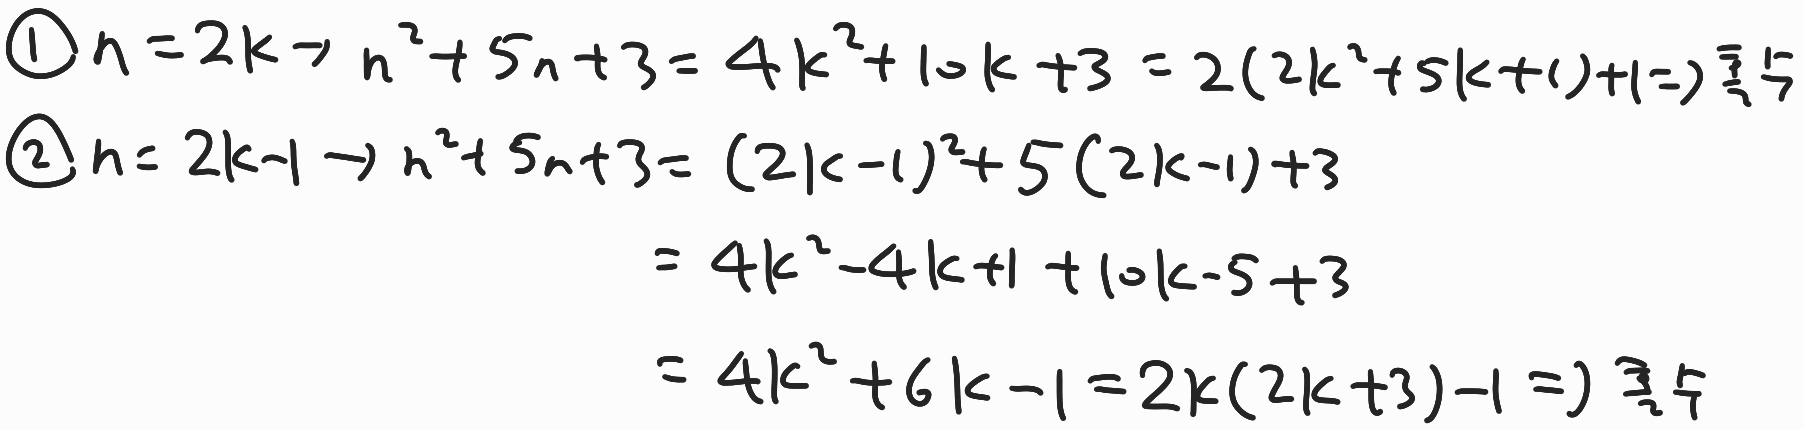 ① n=2k→ n²+5n+3=4k²+10k+3=2(2k²+5k+1)+1⇒홀수
② n=2k-1→n²+5n+3=(2k-1)²+5(2k-1)+3
=4k²-4k+1+10k-5+3
=4k²+6k-1=2k(2k+3)-1⇒홀수